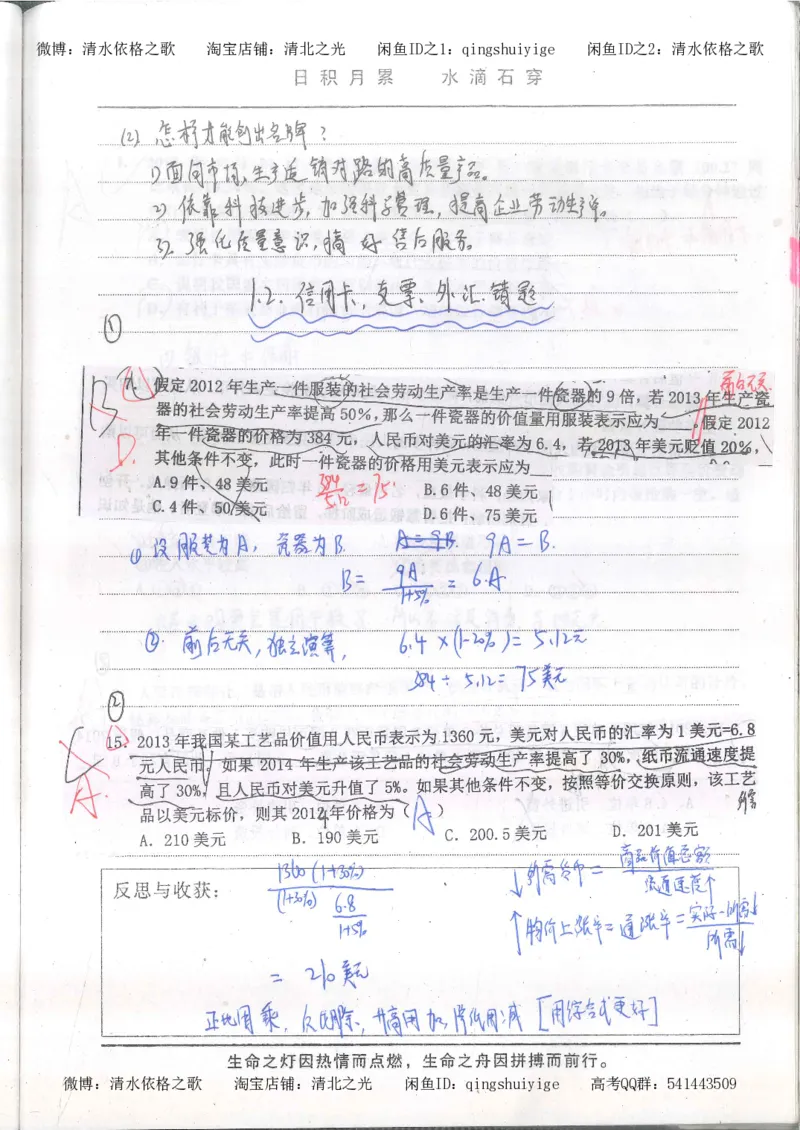 微博：清水依格之歌 淘宝店铺：清北之光 闲鱼ID之1：qingshuiyige 闲鱼ID之2：清水依格之歌
日积月累 水滴石穿
(2) 怎样才能创出名牌？
1) 面向市场，生产适销对路的高质量产品。
2) 依靠科技进步，加强科学管理，提高企业劳动生产率。
3) 强化质量意识，搞好售后服务。
1.2. 信用卡、支票、外汇错题
①
7. 假定2012年生产一件服装的社会劳动生产率是生产一件瓷器的9倍，若2013年生产瓷
器的社会劳动生产率提高50%，那么一件瓷器的价值量用服装表示应为____。假定2012
年一件瓷器的价格为384元，人民币对美元的汇率为6.4，若2013年美元贬值20%，
其他条件不变，此时一件瓷器的价格用美元表示应为____
A.9件、48美元 B.6件、48美元
C.4件、50美元 D.6件、75美元
B
D.
前后无关
384/5.12=75
① 设服装为A，瓷器为B. A=9B 9A=B.
B= 9A/1+5% = 6A
②. 前后无关，独立演算， 6.4×(1-20%)=5.12元
384÷5.12=75美元
②
15. 2013年我国某工艺品价值用人民币表示为1360元，美元对人民币的汇率为1美元=6.8
元人民币，如果2014年生产该工艺品的社会劳动生产率提高了30%，纸币流通速度提
高了30%，且人民币对美元升值了5%。如果其他条件不变，按照等价交换原则，该工艺
品以美元标价，则其2014年价格为（A）
A. 210美元 B. 190美元 C. 200.5美元 D. 201美元
C
A.
反思与收获：
1360(1+30%)
(1+30%) 6.8
1+5%
= 210美元
↓所需货币= 商品价值总额/流通速度↑
↑物价上涨率=通胀率= 实际-所需↓/所需↓
正比用乘，反比用除，升高用加，降低用减 [用综合式更好]
生命之灯因热情而点燃，生命之舟因拼搏而前行。
微博：清水依格之歌 淘宝店铺：清北之光 闲鱼ID：qingshuiyige 高考QQ群：541443509